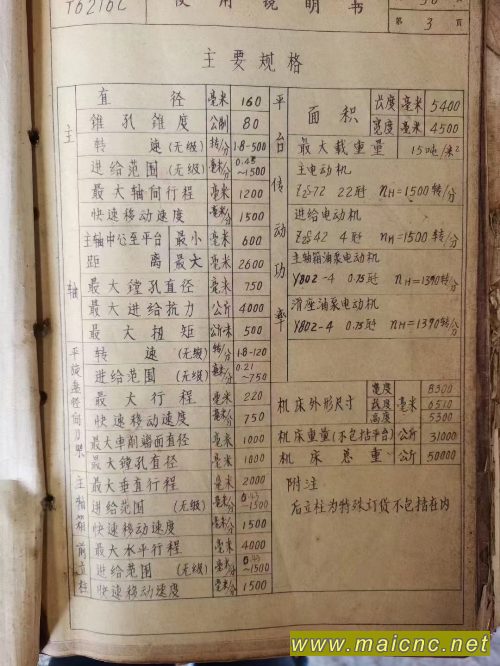 T6216C 使用说明书
第 3 页
主要规格
主轴
直径 毫米 160
锥孔锥度 公制 80
转速 (无级) 转/分 1.8-500
进给范围 (无级) 毫米/分 ~1500
最大轴向行程 毫米 1200
快速移动速度 毫米/分 1500
主轴中心至平台距离 最小 毫米 600
最大 毫米 2600
最大镗孔直径 毫米 750
最大进给抗力 公斤 4000
最大扭矩 公斤·米 500
平旋盘径向刀架
转速 (无级) 转/分 1.8-120
进给范围 (无级) 毫米/分 0.21~750
最大行程 毫米 220
快速移动速度 毫米/分 750
最大车削端面直径 毫米 1000
最大镗孔直径 毫米 1000
主轴箱
最大垂直行程 毫米 2000
进给范围 (无级) ~1500
快速移动速度 毫米/分 1500
前立柱
最大水平行程 毫米 4000
进给范围 (无级) 毫米/分 ~1500
快速移动速度 毫米/分 1500
平台
面积 长度 毫米 5400
宽度 毫米 4500
最大载重量 15吨/米²
传动功率
主电动机
Z2-72 22瓩 nH=1500转/分
进给电动机
42 4瓩 nH=1500转/分
主轴箱油泵电动机
Y802-4 0.75瓩 nH=1390转/分
滑座油泵电动机
Y802-4 0.75瓩 nH=1390转/分
机床外形尺寸 毫米
宽度 8300
长度 6510
高度 5300
机床重量(不包括平台) 公斤 31000
机床总重 公斤 50000
附注
后立柱为特殊订货不包括在内
www.maicnc.net